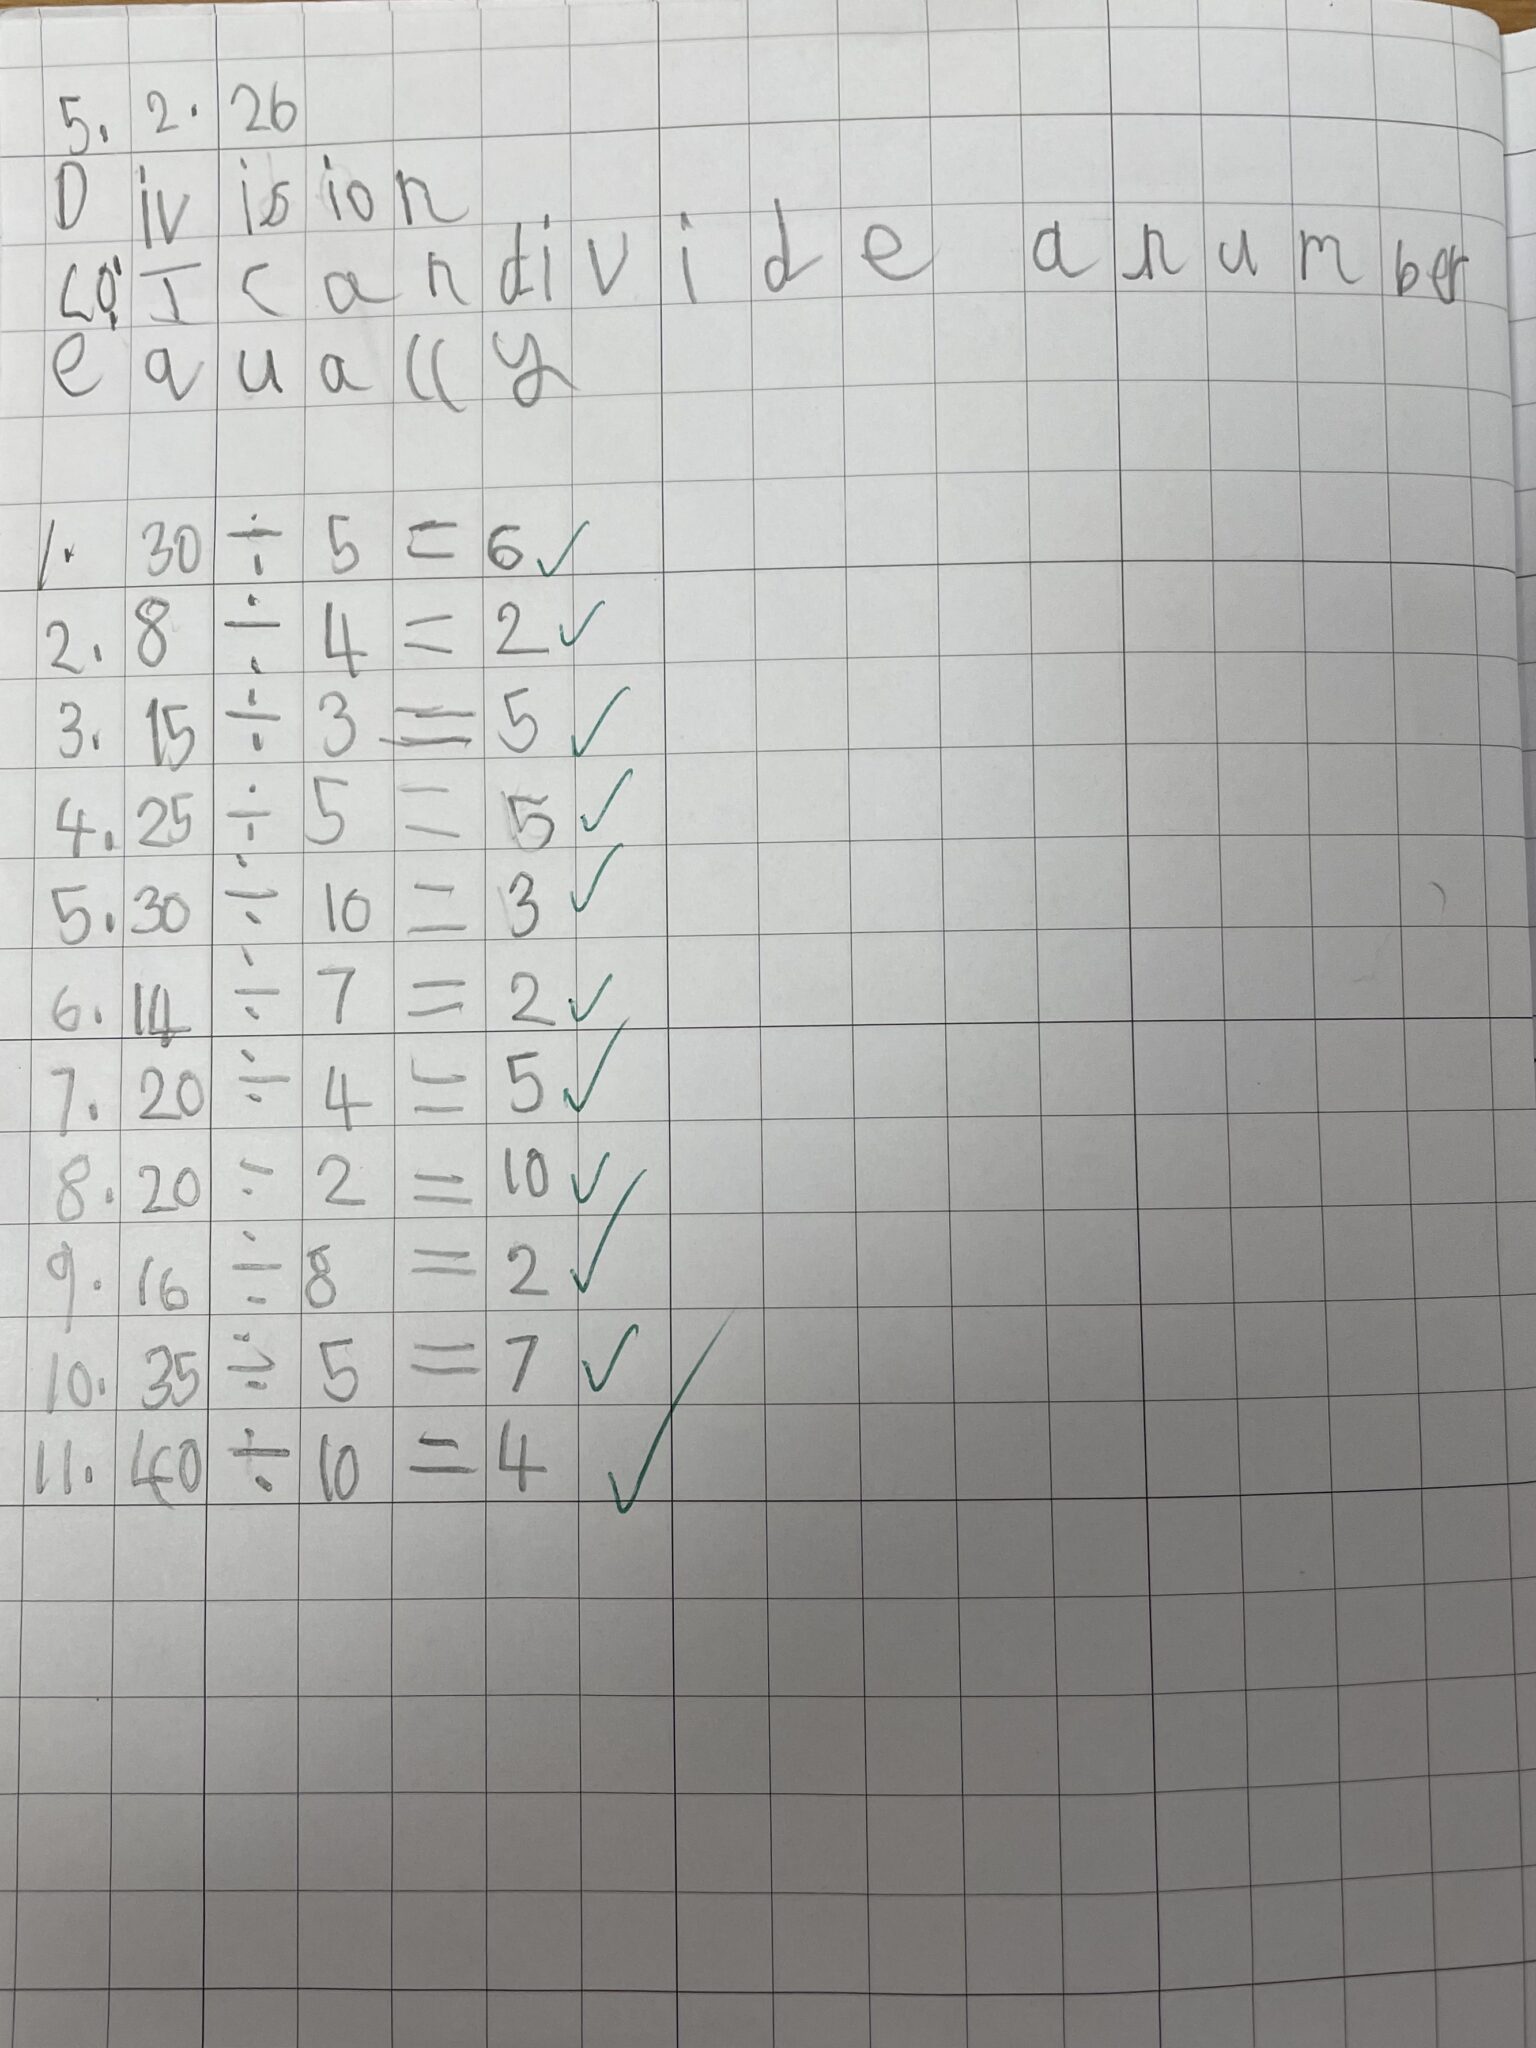 5. 2. 26
Division
LO: I can divide a number
equally
1. 30 ÷ 5 = 6 ✓
2. 8 ÷ 4 = 2 ✓
3. 15 ÷ 3 = 5 ✓
4. 25 ÷ 5 = 5 ✓
5. 30 ÷ 10 = 3 ✓
6. 14 ÷ 7 = 2 ✓
7. 20 ÷ 4 = 5 ✓
8. 20 ÷ 2 = 10 ✓
9. 16 ÷ 8 = 2 ✓
10. 35 ÷ 5 = 7 ✓
11. 40 ÷ 10 = 4 ✓